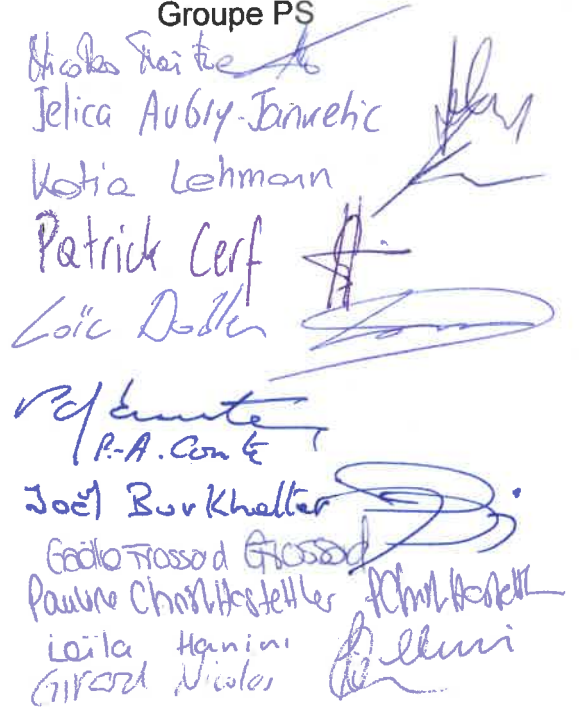 Groupe PS
Nicolas
Jelica Aubry-Janketic
Katia Lehmann
Patrick Cerf
Loïc Dobler
P.-A. Comte
Joël Burkhalter
Gaëlle Frossard GFrossard
Pauline Christ Hostettler PChrist Hostettl
Leïla Hanini
Girard Nicolas